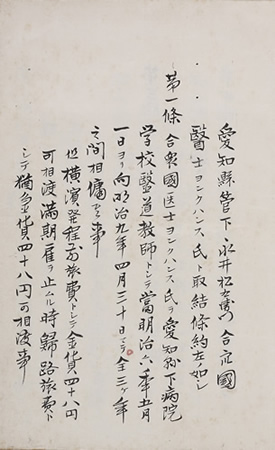 愛知縣管下永井松右衛門合衆國
醫士ヨンクハンス氏ト取結條約左ノ如シ
第一條 合衆國医士ヨンクハンス氏ヲ愛知縣下病院
学校醫道教師トシテ當明治六年五月
一日ヨリ向明治九年四月三十日マテ全三ケ年
之間相傭候事
但横濱発程前旅費トシテ金貨四十八円
可相渡満期雇ヲ止ムル時歸路旅費ト
シテ猶金貨四十八円可相渡事